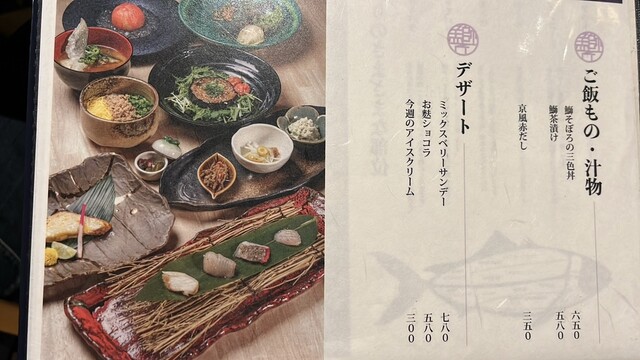 ご飯もの・汁物
鰤そぼろの三色丼
六五〇
鰤茶漬け
五八〇
京風赤だし
三五〇
デザート
ミックスベリーサンデー
七八〇
お麩ショコラ
五八〇
今週のアイスクリーム
三〇〇